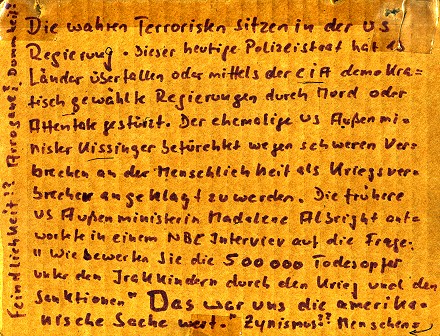 Die wahren Terroristen sitzen in der US
Regierung. Dieser heutige Polizeistaat hat
Länder überfallen oder mittels der CIA demokra-
tisch gewählte Regierungen durch Mord oder
Attentate gestürzt. Der ehemalige US Außenmi-
nister Kissinger befürchtet wegen schweren Ver-
brechen an der Menschlichkeit als Kriegsver-
brecher angeklagt zu werden. Die frühere
US Außenministerin Madalene Albright ant-
wortete in einem NBC Interview auf die Frage:
"Wie bewerten Sie die 500000 Todesopfer
unter den Irakkindern durch den Krieg und den
Sanktionen" Das war uns die amerika-
nische Sache wert." Zynismus?? Menschen=
feindlichkeit?? Arroganz? Dummheit?